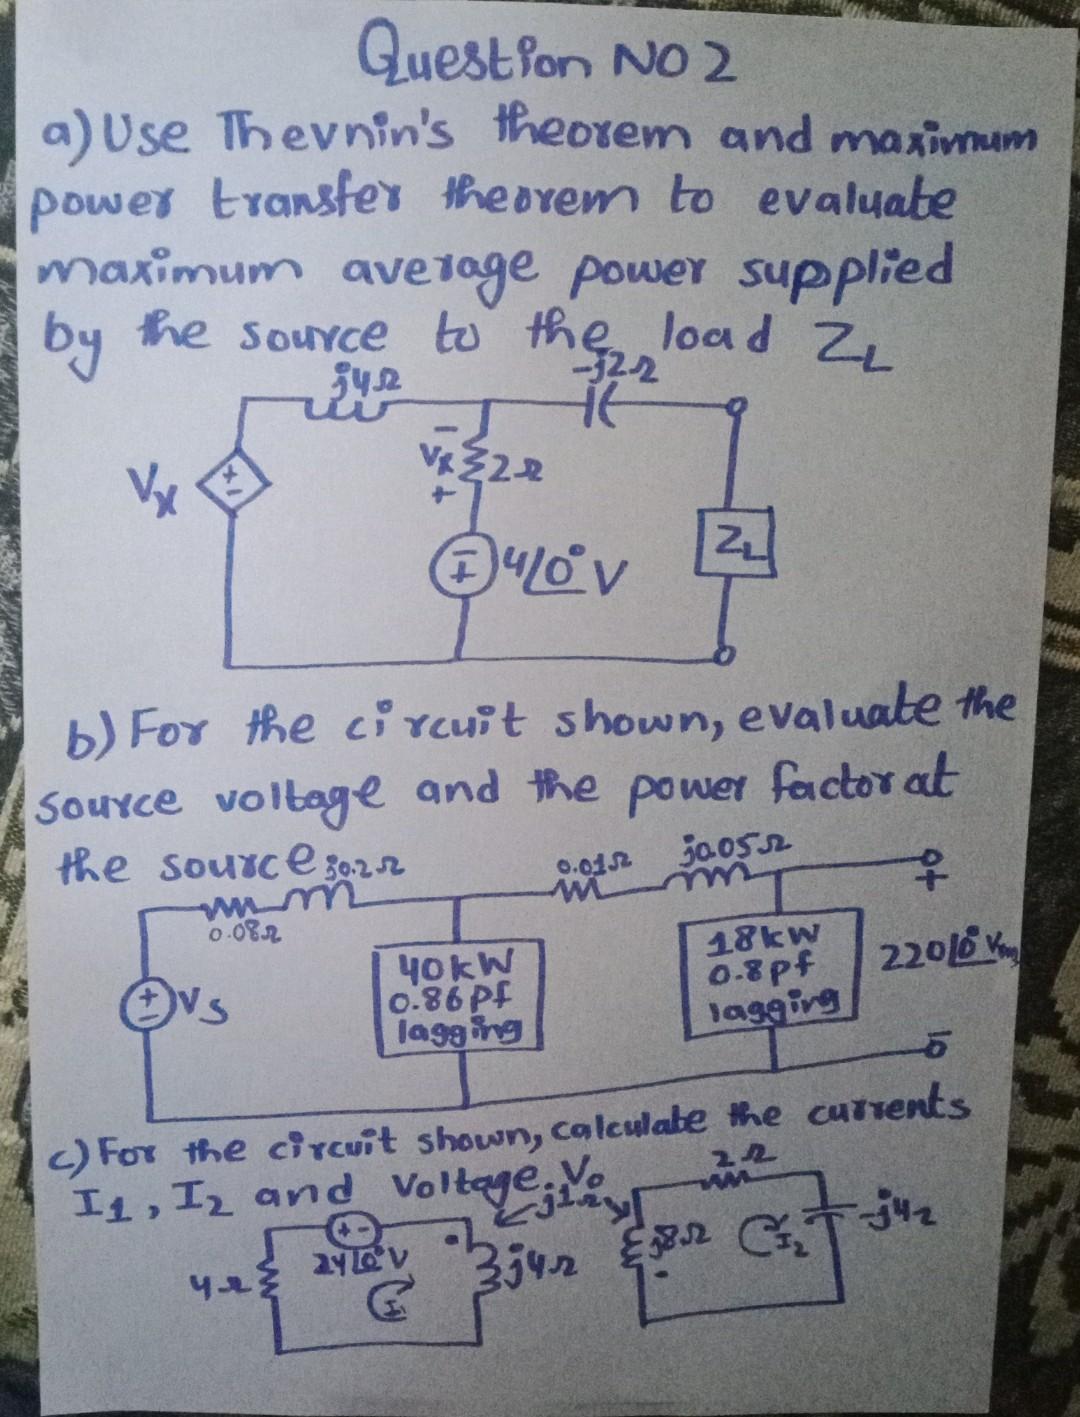 Question NO 2
a) Use Thevnin's theorem and maximum
power transfer theorem to evaluate
maximum average power supplied
by the source to the load ZL
j4Ω
-j2Ω
Vx
+
-
-
Vx
+
2Ω
-
+
4∠0° V
ZL
b) For the circuit shown, evaluate the
source voltage and the power factor at
the source
0.08Ω
j0.2Ω
0.01Ω
j0.05Ω
+
+
-
Vs
40kW
0.86 Pf
lagging
18kW
0.8 pf
lagging
220∠0° Vrms
-
c) For the circuit shown, calculate the currents
I1, I2 and Voltage. Vo
4Ω
+ -
24∠0° V
I1
j4Ω
j1Ω
j8Ω
2Ω
I2
-j4Ω